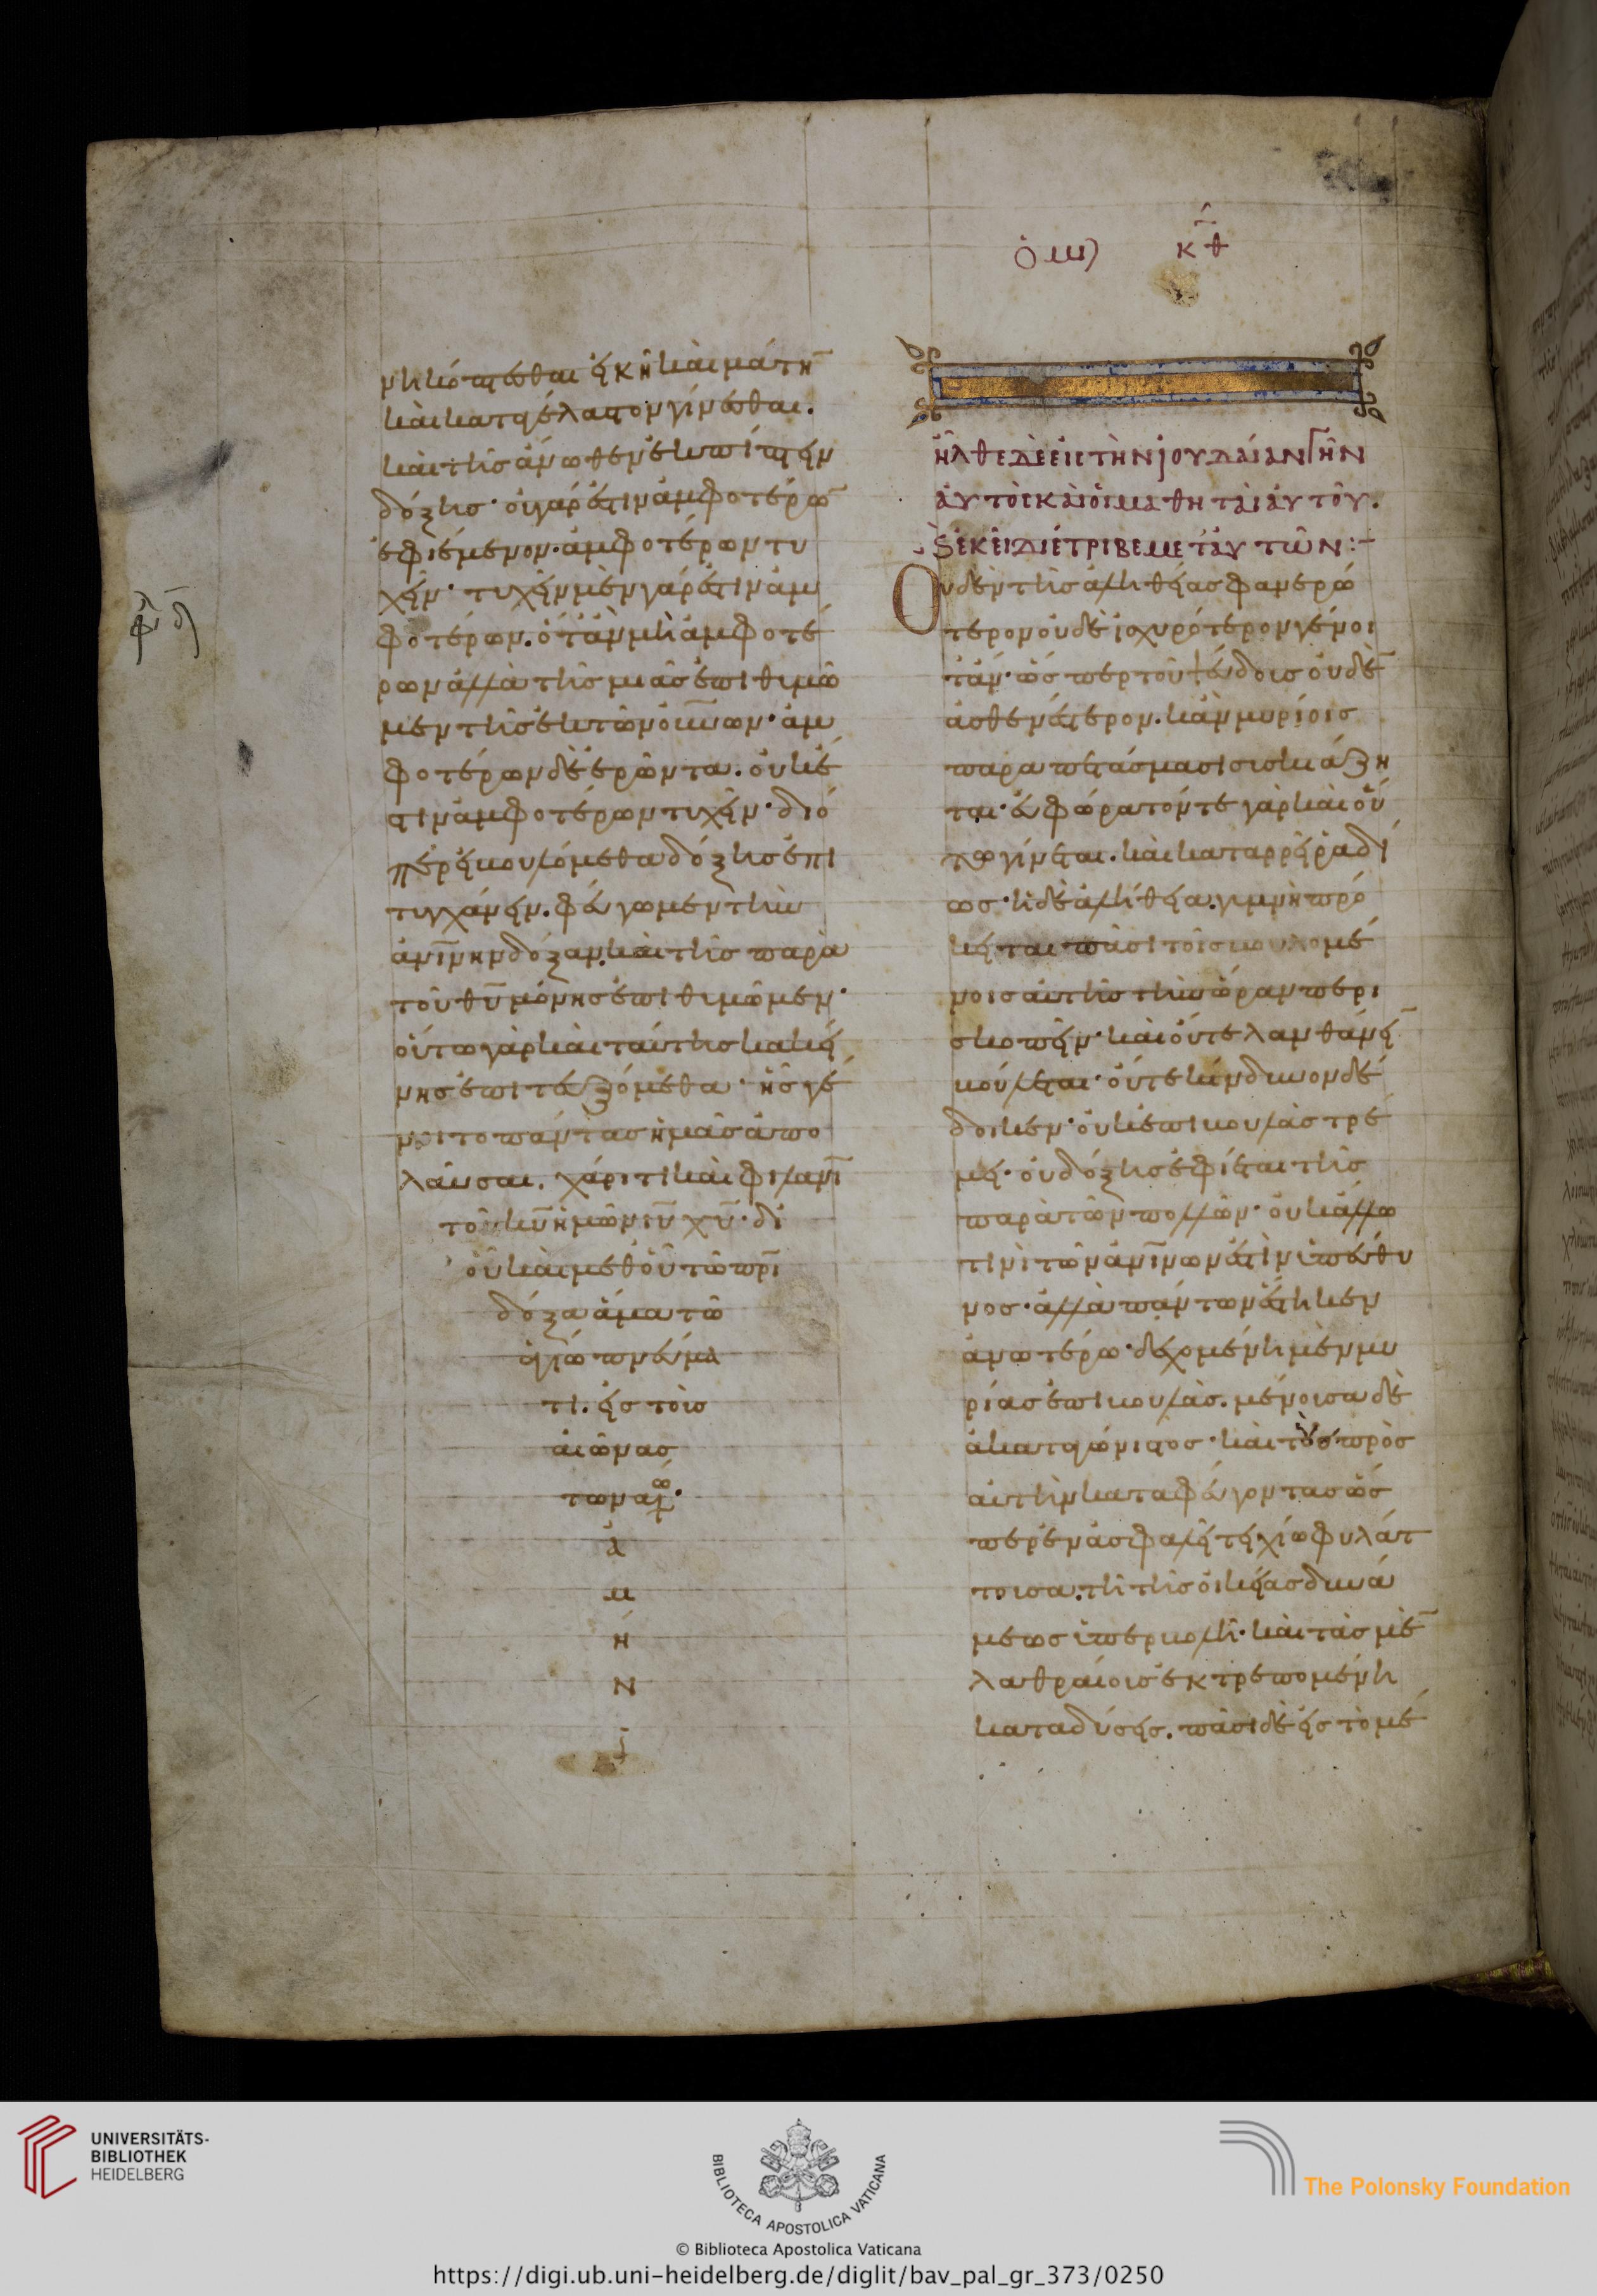 νη κόπτεσθαι εἰκῆ καὶ μάτη̅
καὶ καταγέλαστον γίνεσθαι.
καὶ τῆς ἄνωθεν ἐκπίπτειν
δόξης· οὐ γάρ ἐστιν ἀμφοτέρω̅
ἐφιέμενον· ἀμφοτέρων τυ
χεῖν· τυχεῖν μὲν γάρ ἐστιν ἀμ
φοτέρων. ὅτ' ἂν μὴ ἀμφοτέ
ρων ἀλλὰ τῆς μιᾶς ἐπιθυμῶ
μεν τῆς ἐκ τῶν οὐν̅ων· ἀμ
φοτέρων δὲ ἐρῶντα. οὐκ ἔ
στιν ἀμφοτέρων τυχεῖν· διό
περ εἰ βουλόμεθα δόξης ἐπι
τυγχάνειν. φεύγωμεν τὴν
ἀνι̅νην δόξαν. καὶ τῆς παρὰ
τοῦ θυ̅ μόνης ἐπιθυμῶμεν·
οὕτω γὰρ καὶ ταύτης κἀκεί
νης ἐπιτευξόμεθα· ἧς γέ
νοιτο πάντας ἡμᾶς ἀπο
λαῦσαι. χάριτι καὶ φιλανι̅
τοῦ κυ̅ ἡμῶν ιυ̅ χυ̅· δι'
οὗ καὶ μεθ' οὗ τῶ πρι̅
δόξα ἅμα τῶ
ἁγίω πνεύμα
τι. εἰς τοὺς
αἰῶνας
τῶν αἰώ.
ἀ
μ
ή
Ν
ὁμ) κθ
ἦλθε δὲ εἰς τὴν ἰουδαίαν γῆν
αὐτὸς καὶ οἱ μαθηταὶ αὐτοῦ.
ϗ ἐκεῖ διέτριβε μετ' αὐτῶν:-
Οὐδὲν τῆς ἀληθείας φανερώ
τερον οὐδὲ ἰσχυρότερον γένοι
τ' ἄν· ὥσπερ τοῦ ψεύδους οὐδὲ̅
ἀσθενέστερον. κἂν μυρίοις
παραπετάσμασι συσκιάζη
ται· εὐφώρατόν τε γὰρ καὶ οὕ
τω γίνεται. καὶ καταρρεῖ ῥαδί
ως· ἡ δὲ ἀλήθεια. γυμνὴ πρό
κειται πᾶσι τοῖς βουλομέ
νοις αὐτῆς τὴν ὥραν περι
σκοπεῖν· καὶ οὔτε λανθάνει̅
βούλεται· οὔτε κίνδυνον δέ
δοικεν· οὐκ ἐπιβουλὰς τρέ
μει· οὐ δόξης ἐφίεται τῆς
παρὰ τῶν πολλῶν· οὐκ ἄλλω
τινὶ τῶν ἀνι̅νων ἐστὶν ὑπεύθυ
νος· ἀλλὰ πάντων ἕστηκεν
ἀνωτέρω· δεχομένη μὲν μυ
ρίας ἐπιβουλάς. μένουσα δὲ
ἀκαταγώνιστος· καὶ τοὺς πρὸς
αὐτὴν καταφεύγοντας ὥσ
περ ἐν ἀσφαλεῖ τειχίω φυλάτ
τουσα. τῆ τῆς οἰκείας δυνά
μεως ὑπερβολῆ· καὶ τὰς μὲ̅
λαθραίους ἐκτρεπομένη
καταδύσεις. πᾶσι δὲ εἰς τὸ μέ
UNIVERSITÄTS-
BIBLIOTHEK
HEIDELBERG
BIBLIOTECA APOSTOLICA VATICANA
© Biblioteca Apostolica Vaticana
The Polonsky Foundation
https://digi.ub.uni-heidelberg.de/diglit/bav_pal_gr_373/0250